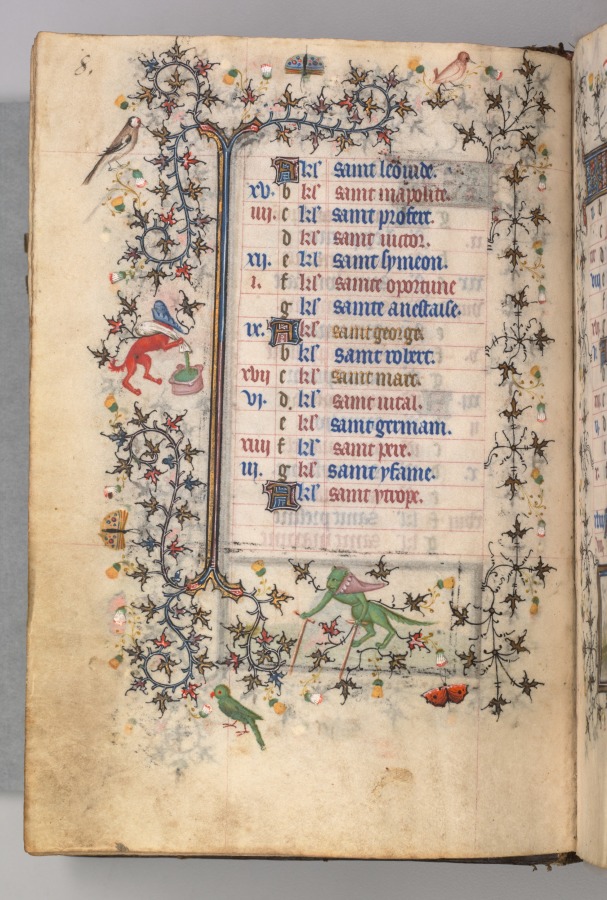 8.
A kl' saint leonide.
xv. b kl' saint mapolite.
iiij. c kl' saint profert.
d kl' saint victor.
xij. e kl' saint symeon.
i. f kl' sainte oportune
g kl' sainte anestaise.
ix. A kl' saint george.
b kl' saint robert.
xvij c kl' saint marc.
vj. d. kl' saint vital.
e kl' saint germain.
xiiij f kl' saint pere.
iij. g kl' saint
A kl' saint ytrope.